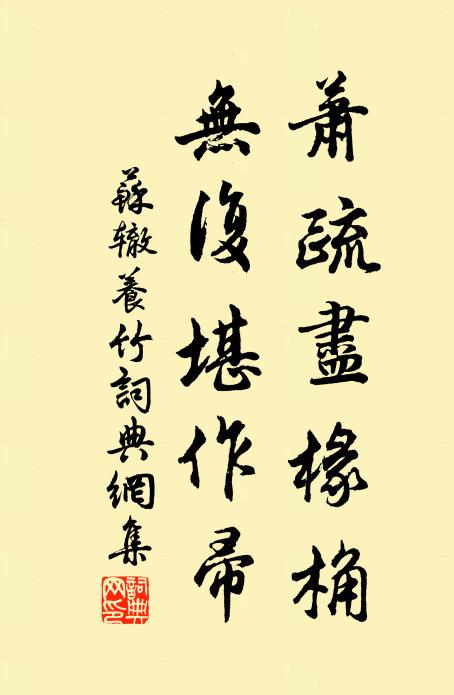 蕭疏盡椽桷
無復堪作帚
蘇辙養竹詞典網集
詞典網印